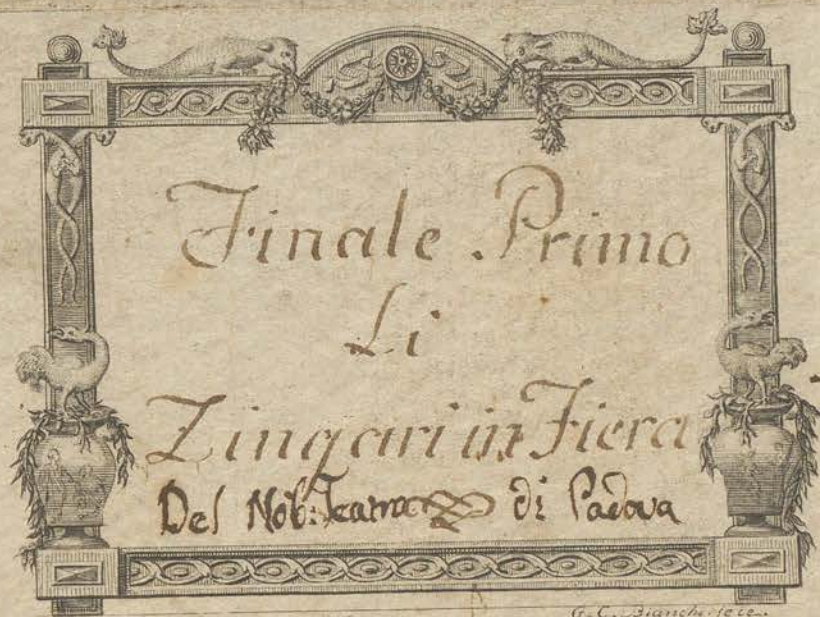 Finale Primo
Li
Zingari in Fiera
Del Nob: Teatro di Padova
G. C. Bianchi fece.